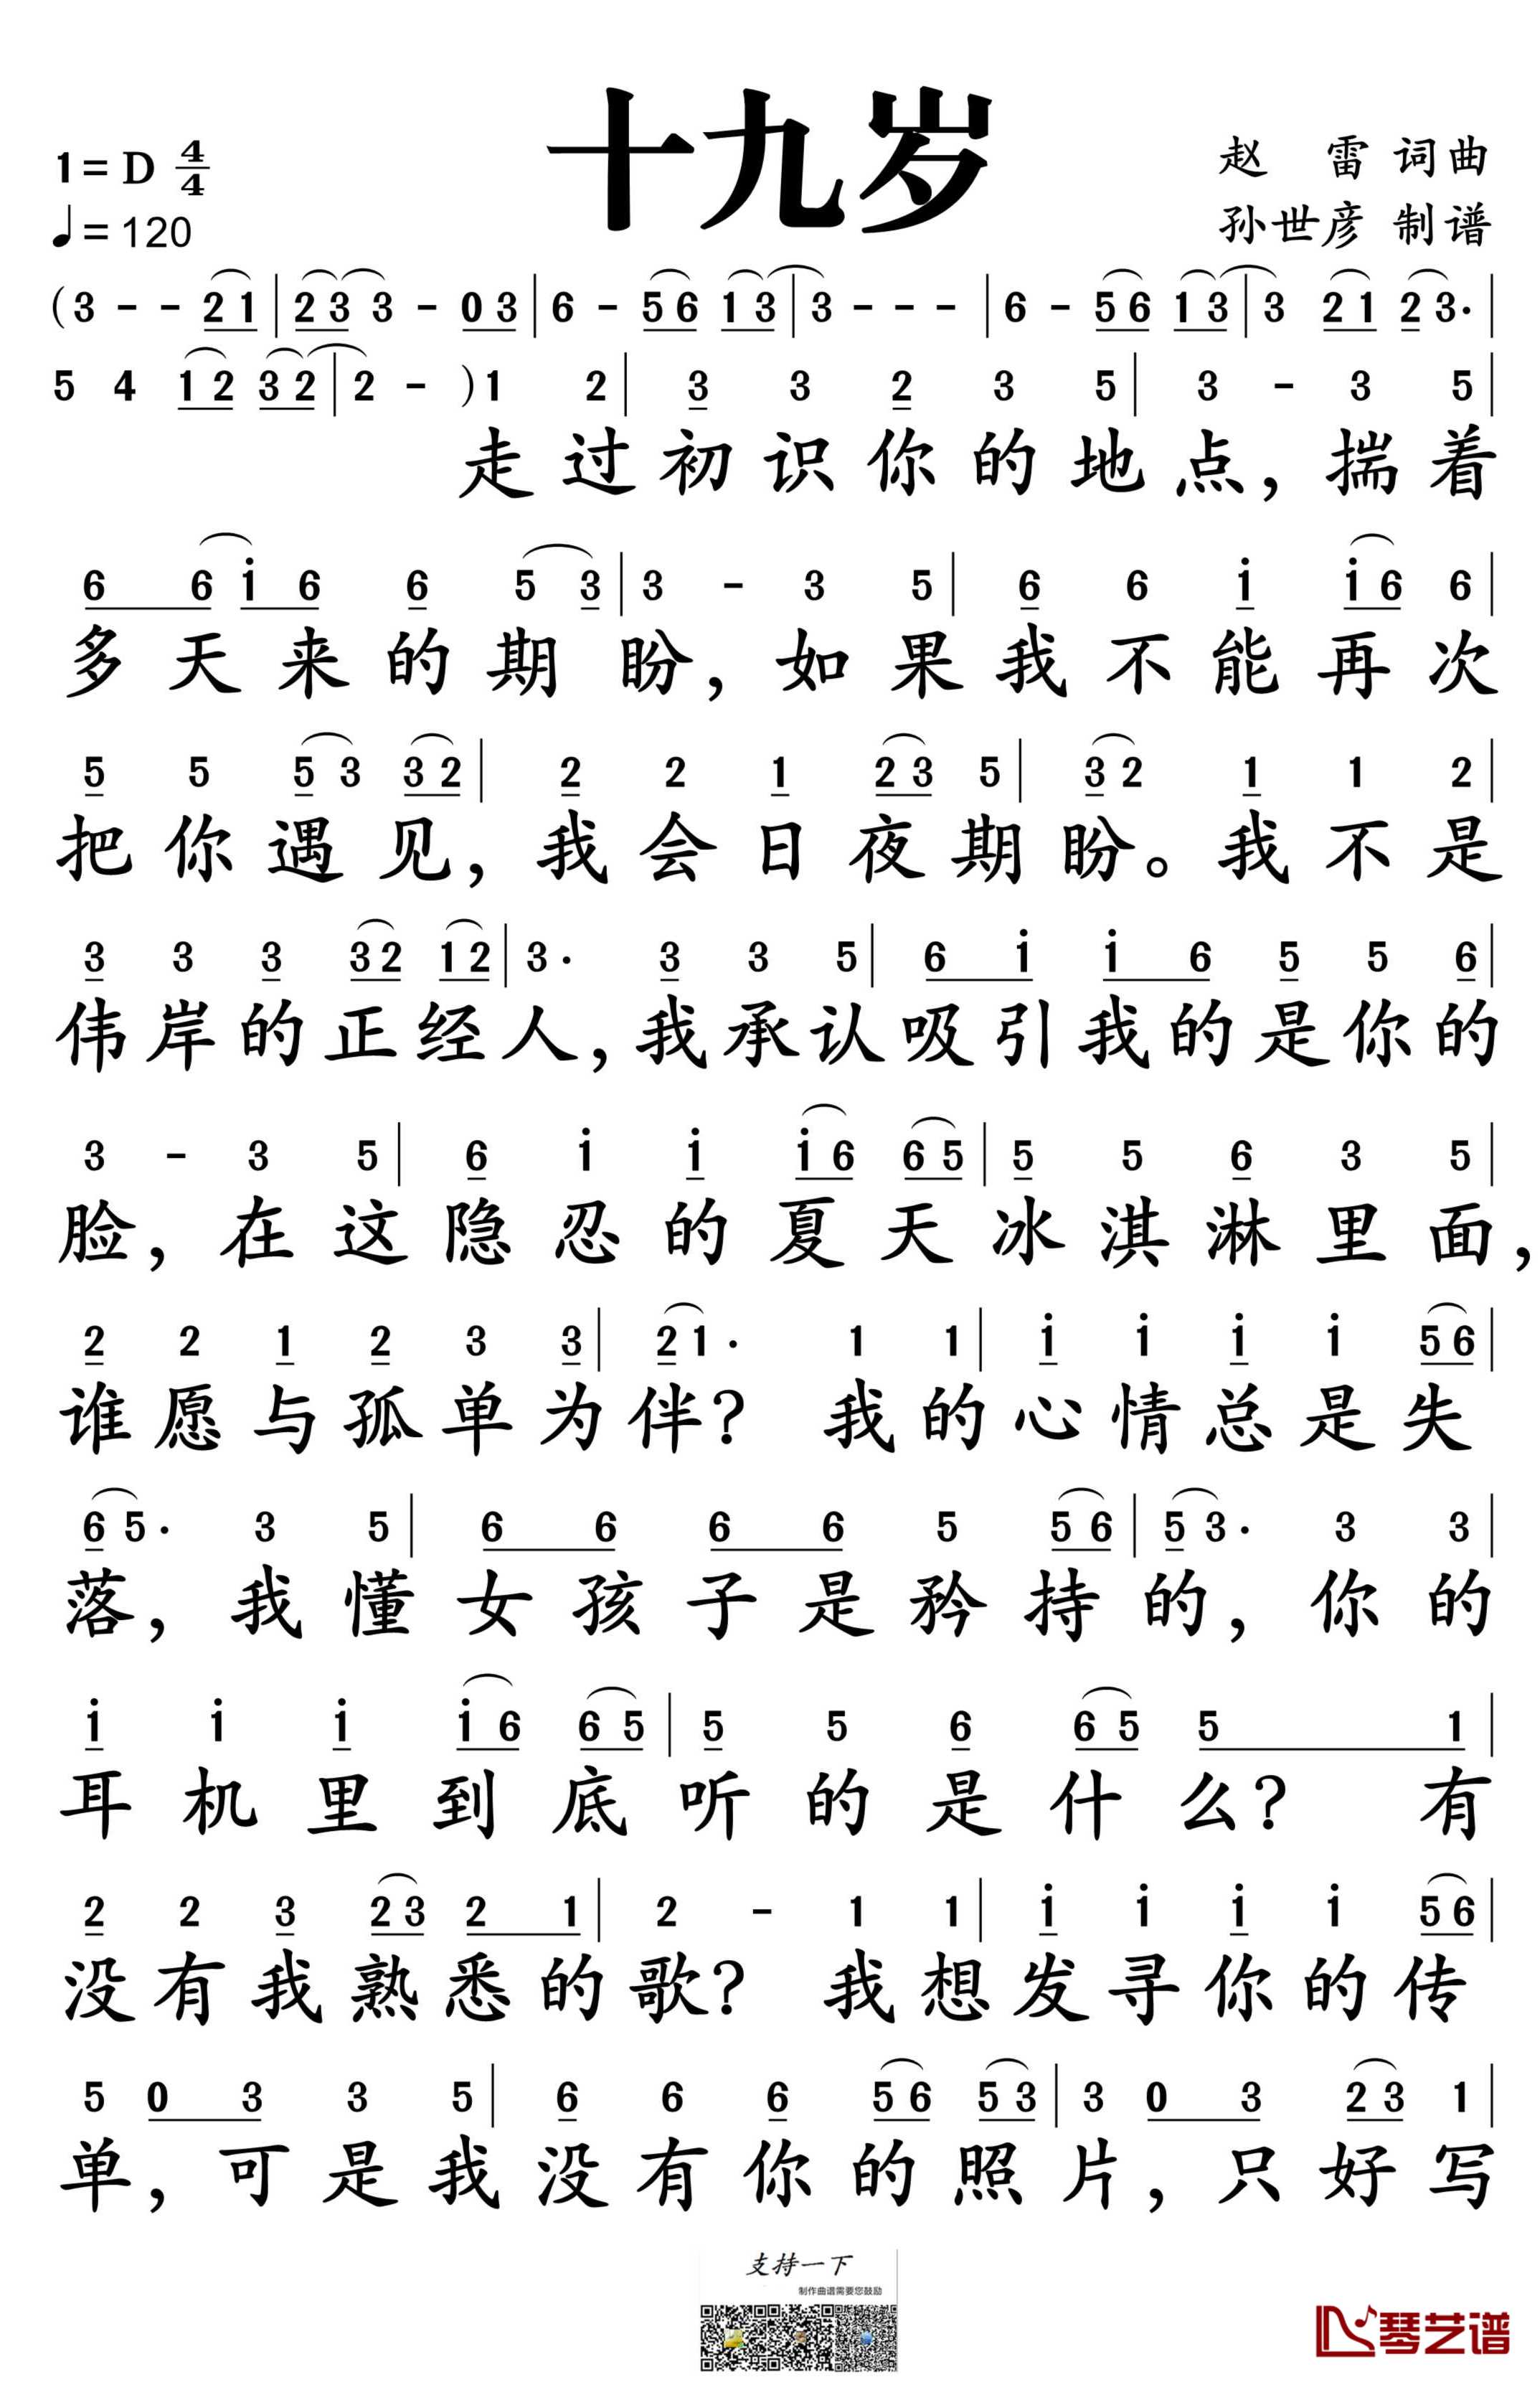 十九岁
1=D 4/4
♩=120
赵 雷 词曲
孙世彦 制谱
(3 - - 2 1 | 2 3 3 - 0 3 | 6 - 5 6 1 3 | 3 - - - | 6 - 5 6 1 3 | 3 2 1 2 3. |
5 4 1 2 3 2 | 2 - ) 1 2 | 3 3 2 3 5 | 3 - 3 5 |
走过初识你的地点，揣着
6 6 i 6 6 5 3 | 3 - 3 5 | 6 6 i i 6 6 |
多天来的期盼，如果我不能再次
5 5 5 3 3 2 | 2 2 1 2 3 5 | 3 2 1 1 2 |
把你遇见，我会日夜期盼。我不是
3 3 3 3 2 1 2 | 3. 3 3 5 | 6 i i 6 5 5 6 |
伟岸的正经人，我承认吸引我的是你的
3 - 3 5 | 6 i i i 6 6 5 | 5 5 6 3 5 |
脸，在这隐忍的夏天冰淇淋里面，
2 2 1 2 3 3 | 2 1. 1 1 | i i i i 5 6 |
谁愿与孤单为伴？ 我的心情总是失
6 5. 3 5 | 6 6 6 6 5 5 6 | 5 3. 3 3 |
落，我懂女孩子是矜持的，你的
i i i i 6 6 5 | 5 5 6 6 5 5 1 |
耳机里到底听的是什么？ 有
2 2 3 2 3 2 1 | 2 - 1 1 | i i i i 5 6 |
没有我熟悉的歌？ 我想发寻你的传
5 0 3 3 5 | 6 6 6 5 6 5 3 | 3 0 3 2 3 1 |
单，可是我没有你的照片，只好写
支持一下
制作曲谱需要您鼓励
琴艺谱